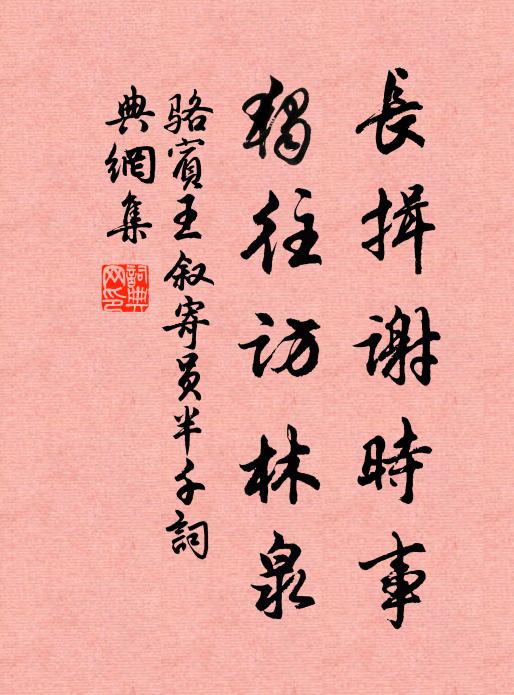 長揖謝時事
獨往訪林泉
駱賓王叙寄員半千詞
典網集
詞典
网印